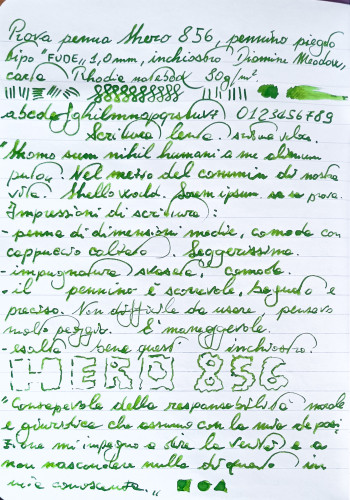 Prova penna Hero 856, pennino piegato
tipo "FUDE" 1,0 mm, inchiostro Diamine Meadow,
carta Rhodia notebook 80g/m².
abcdefghilmnopqrstuvz 0123456789
Scrittura lenta. scrittura veloce.
"Homo sum nihil humani a me alienum
puto". Nel mezzo del cammin di nostra
vita. Hello world. Lorem ipsum. sa sa prova.
Impressioni di scrittura:
- penna di dimensioni medie, comoda con
cappuccio calzato. Leggerissima.
- impugnatura svasata, comoda.
- il pennino è scorrevole, bagnato e
preciso. Non difficile da usare, pensavo
molto peggio. È maneggevole.
- esalta bene questi inchiostro.
HERO 856
"Consapevole della responsabilità morale
e giuridica che assumo con la mia deposi
zione mi impegno a dire la verità e a
non nascondere nulla di quanto in
mia conoscenza."